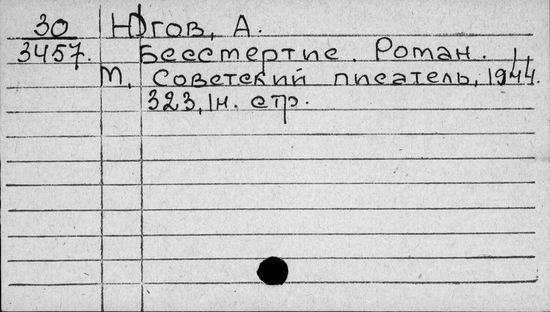 30 Югов, А.
3457. Бессмертие. Роман.
М, Советский писатель, 1944.
323, 1н. стр.